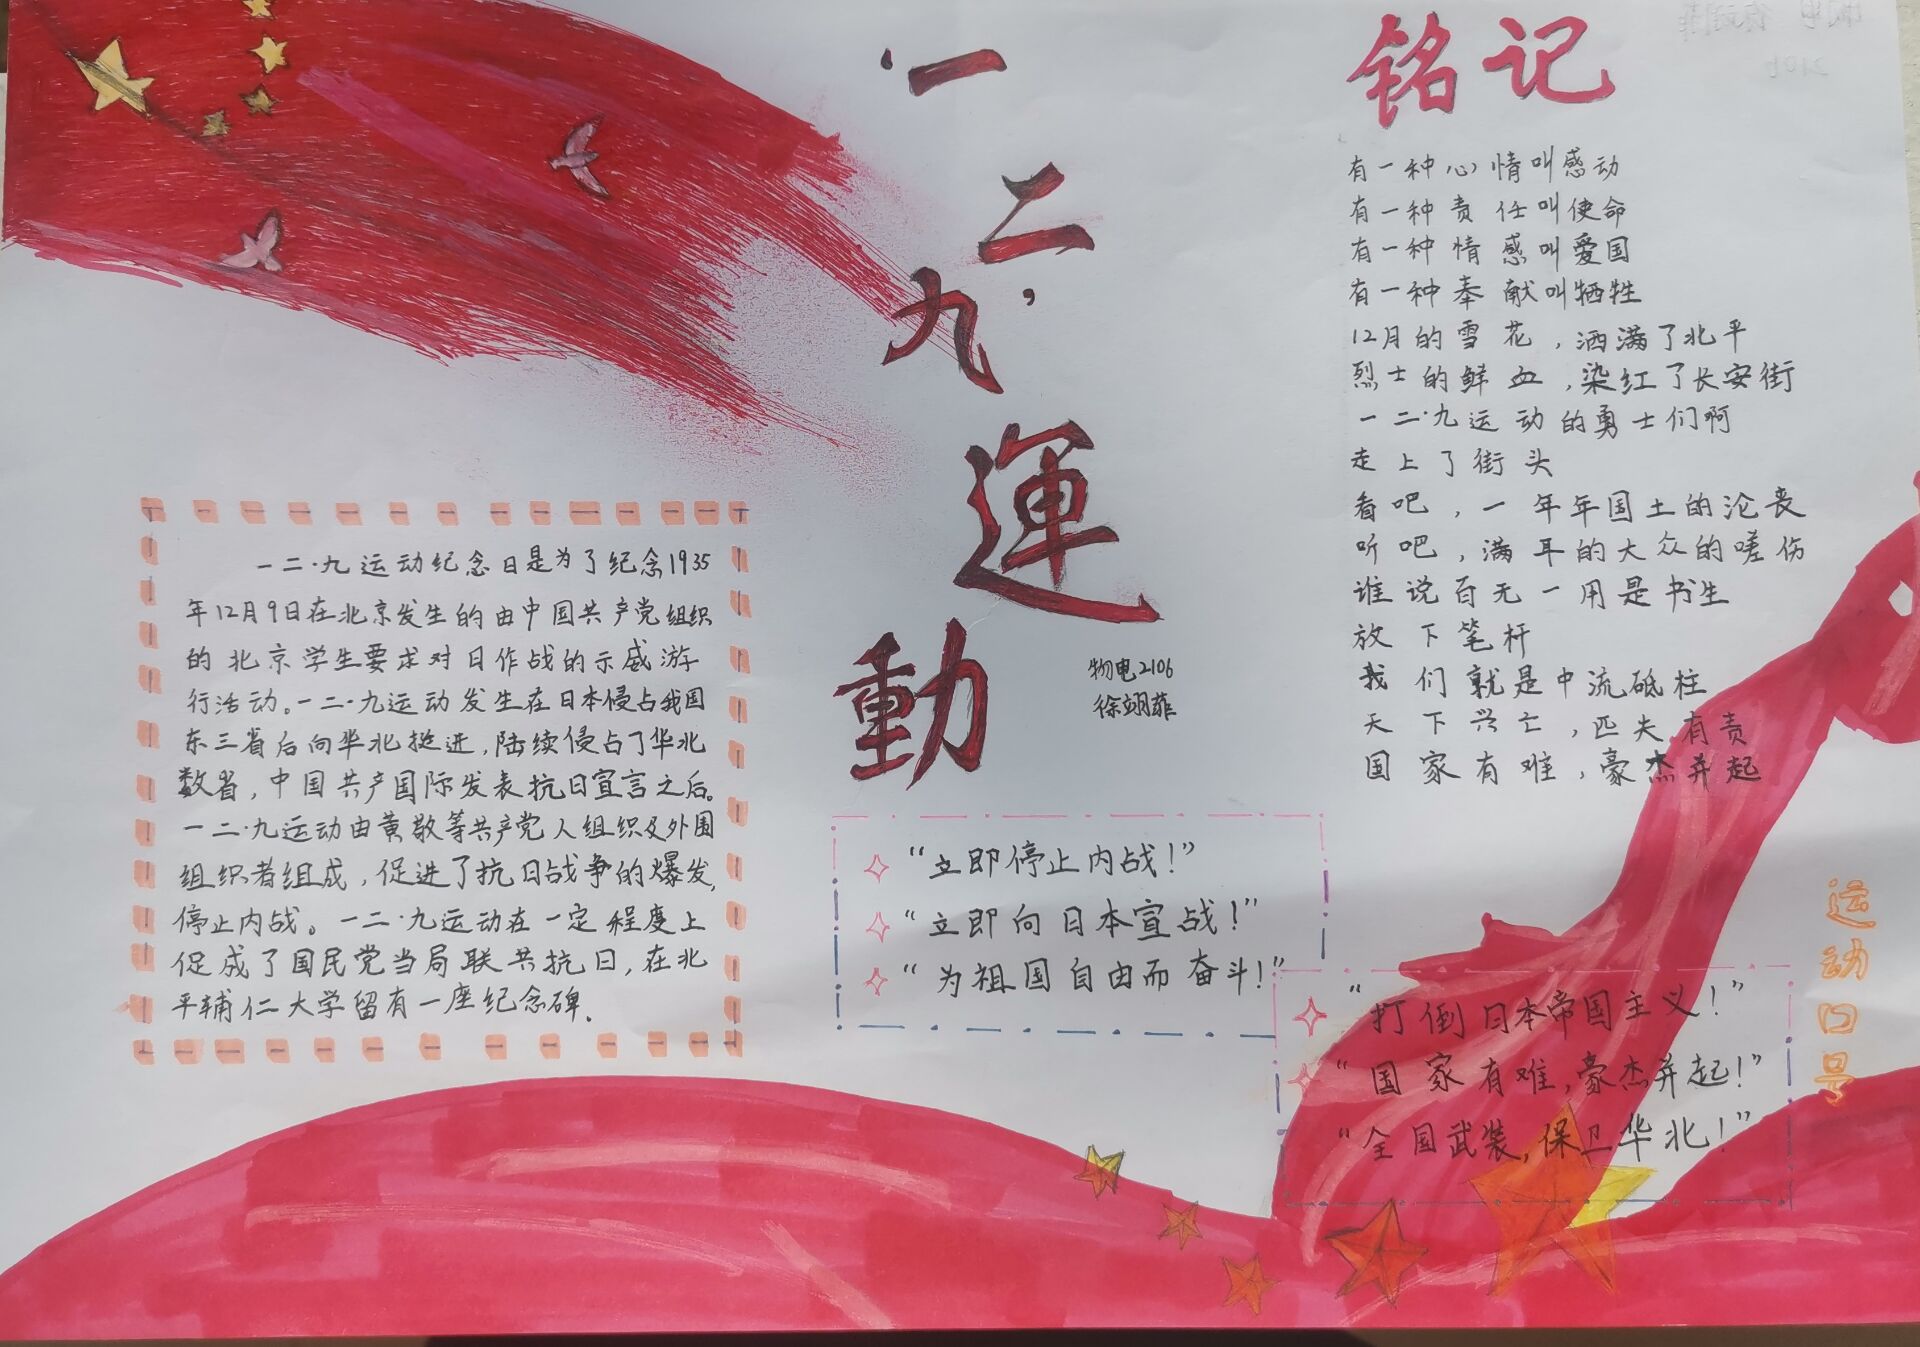 ‘一二’九運動
物电2106
徐翊菲
一二·九运动纪念日是为了纪念1935
年12月9日在北京发生的由中国共产党组织
的北京学生要求对日作战的示威游
行活动。一二·九运动发生在日本侵占我国
东三省后向华北挺进，陆续侵占了华北
数省，中国共产国际发表抗日宣言之后。
一二·九运动由黄敬等共产党人组织及外围
组织者组成，促进了抗日战争的爆发，
停止内战。一二·九运动在一定程度上
促成了国民党当局联共抗日，在北
平辅仁大学留有一座纪念碑．
铭记
有一种心情叫感动
有一种责任叫使命
有一种情感叫爱国
有一种奉献叫牺牲
12月的雪花，洒满了北平
烈士的鲜血，染红了长安街
一二·九运动的勇士们啊
走上了街头
看吧，一年年国土的沦丧
听吧，满耳的大众的嗟伤
谁说百无一用是书生
放下笔杆
我们就是中流砥柱
天下兴亡，匹夫有责
国家有难，豪杰并起
“立即停止内战！”
“立即向日本宣战！”
“为祖国自由而奋斗！”
“打倒日本帝国主义！”
“国家有难，豪杰并起！”
“全国武装，保卫华北！”
运动口号